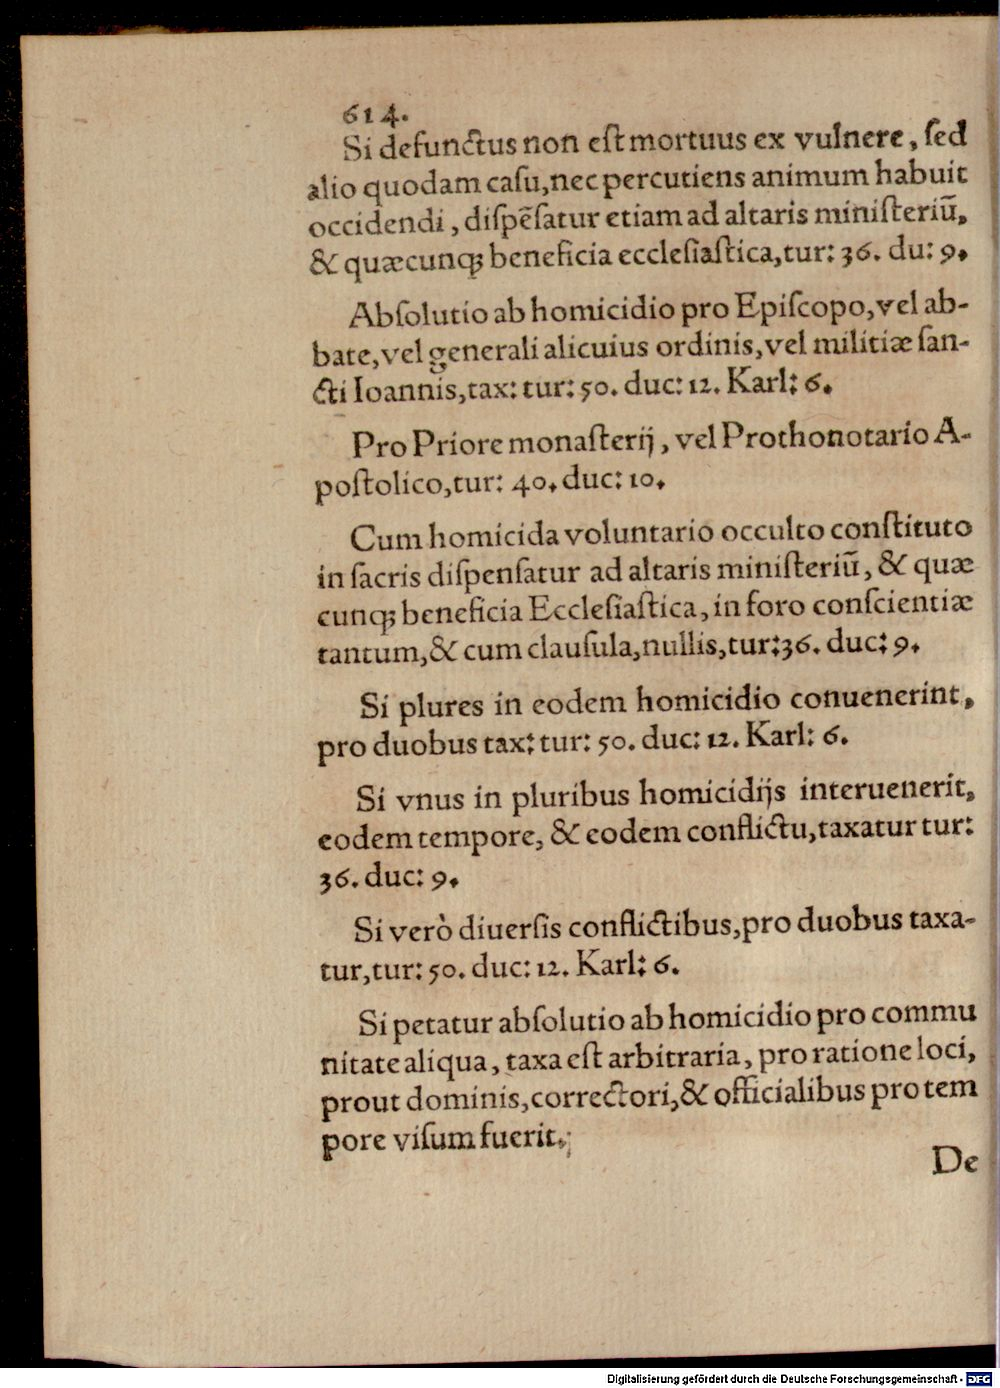 614.
Si defunctus non est mortuus ex vulnere, sed
alio quodam casu, nec percutiens animum habuit
occidendi, dispẽsatur etiam ad altaris ministeriū,
& quæcunqꝫ beneficia ecclesiastica, tur: 36. du: 9.
Absolutio ab homicidio pro Episcopo, vel ab-
bate, vel generali alicuius ordinis, vel militiæ san-
cti Ioannis, tax: tur: 50. duc: 12. Karl: 6.
Pro Priore monasterij, vel Prothonotario A-
postolico, tur: 40. duc: 10.
Cum homicida voluntario occulto constituto
in sacris dispensatur ad altaris ministeriū, & quæ
cunqꝫ beneficia Ecclesiastica, in foro conscientiæ
tantum, & cum clausula, nullis, tur: 36. duc: 9.
Si plures in eodem homicidio conuenerint,
pro duobus tax: tur: 50. duc: 12. Karl: 6.
Si vnus in pluribus homicidijs interuenerit,
eodem tempore, & eodem conflictu, taxatur tur:
36. duc: 9.
Si verò diuersis conflictibus, pro duobus taxa-
tur, tur: 50. duc: 12. Karl: 6.
Si petatur absolutio ab homicidio pro commu
nitate aliqua, taxa est arbitraria, pro ratione loci,
prout dominis, correctori, & officialibus pro tem
pore visum fuerit.
De
Digitalisierung gefördert durch die Deutsche Forschungsgemeinschaft - DFG